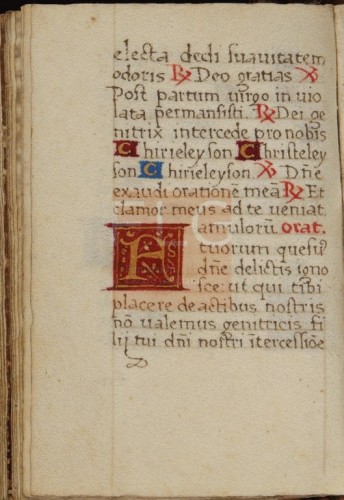 electa dedi suavitatem
odoris ℟ Deo gratias ℣
Post partum virgo in vio
lata permansisti. ℟ Dei ge
nitrix intercede pro nobis
Chirieleyson Christeley
son. Chirieleyson. ℣ Dñe
exaudi orationẽ meã ℟ Et
clamor meus ad te veniat.
Famulorũ orat.
tuorum quesuꝰ
dñe delictis igno
sce: ut qui tibi
placere de actibus nostris
nõ valemus genitricis fi
lij tui dñi nostri ĩtercessiõe